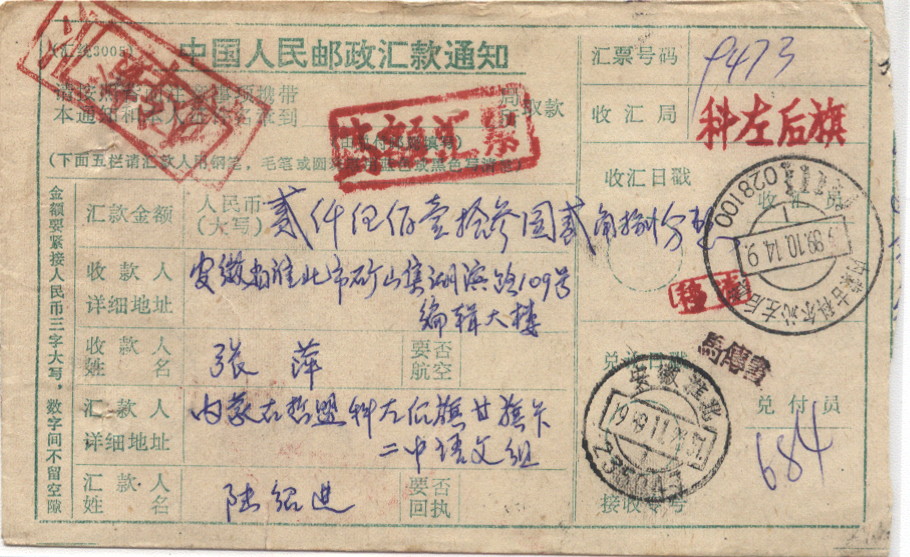 中国人民邮政汇款通知
汇票号码
9473
收汇局
科左后旗
取款
高额汇票
(下面五栏请汇款人用钢笔，毛笔或圆珠笔用蓝色或黑色写清楚)
收汇日戳
收汇员
028100
89.10.14.9
内蒙古科尔沁左后
汇款金额
人民币
(大写)
贰仟伍佰壹拾叁圆贰角捌分整
收款人
详细地址
安徽省淮北市矿山集湖滨路109号
编辑大楼
收款人
姓名
张萍
要否
航空
兑汇日戳
馬傳書
安徽淮北
兑付员
684
汇款人
详细地址
内蒙古哲盟科左后旗甘旗卡
二中语文组
汇款人
姓名
陆绍进
要否
回执
接收
号
金额要紧接人民币三字大写，数字间不留空隙